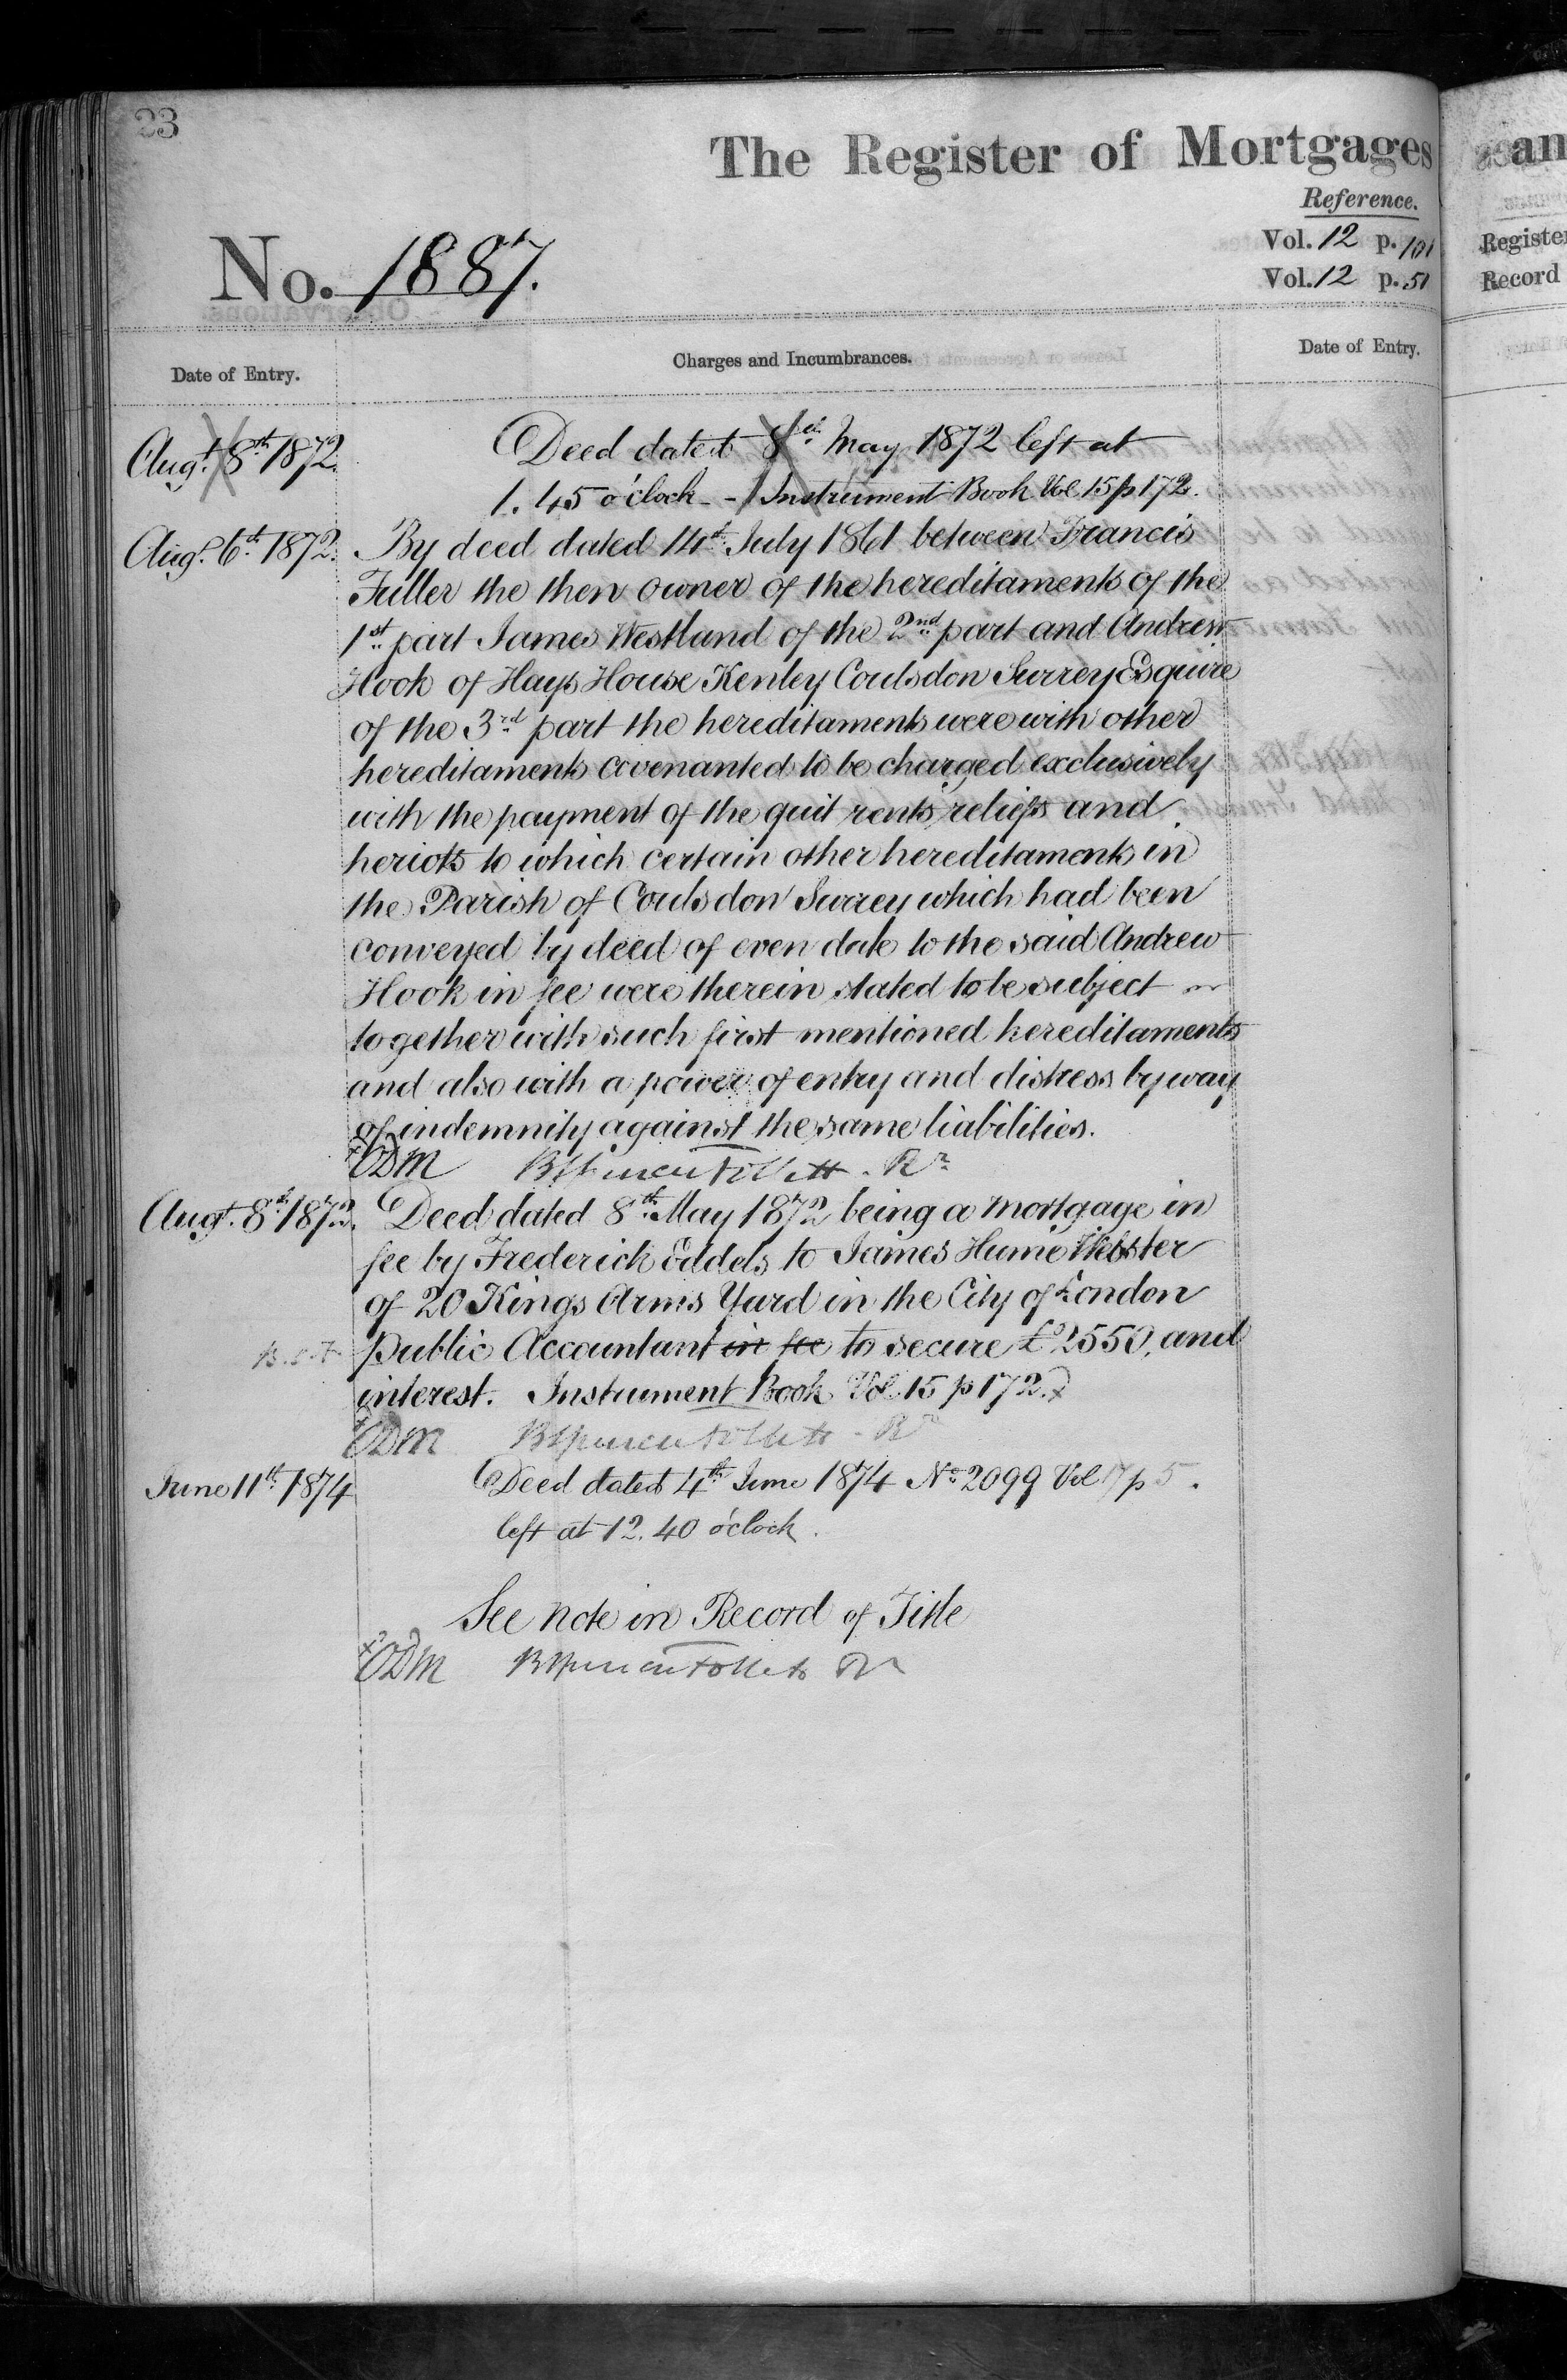 23
The Register of Mortgages
Reference.
No. 1887.
Vol. 12 p. 101
Vol. 12 p. 51
Register
Record
Date of Entry.
Charges and Incumbrances.
Date of Entry.
Augt. 8th 1872.
Deed dated 8th May 1872 left at
1.45 o'clock - Instrument Book Vol 15 p 172.
Augt. 6th 1872.
By deed dated 14th July 1861 between Francis
Fuller the then owner of the hereditaments of the
1st part James Westland of the 2nd part and Andrew
Hook of Hays House Kenley Coulsdon Surrey Esquire
of the 3rd part the hereditaments were with other
hereditaments covenanted to be charged exclusively
with the payment of the quit rents reliefs and
heriots to which certain other hereditaments in
the Parish of Coulsdon Surrey which had been
conveyed by deed of even date to the said Andrew
Hook in fee were therein stated to be subject
together with such first mentioned hereditaments
and also with a power of entry and distress by way
of indemnity against the same liabilities.
ODM
Augt. 8th 1872.
Deed dated 8th May 1872 being a mortgage in
fee by Frederick Eddels to James Hume Webster
of 20 Kings Arms Yard in the City of London
Public Accountant in fee to secure £2550, and
interest. Instrument Book Vol. 15 p 172.
ODM
June 11th 1874
Deed dated 4th June 1874 No 2099 Vol 17 p 5.
left at 12.40 o'clock.
See note in Record of Title
ODM